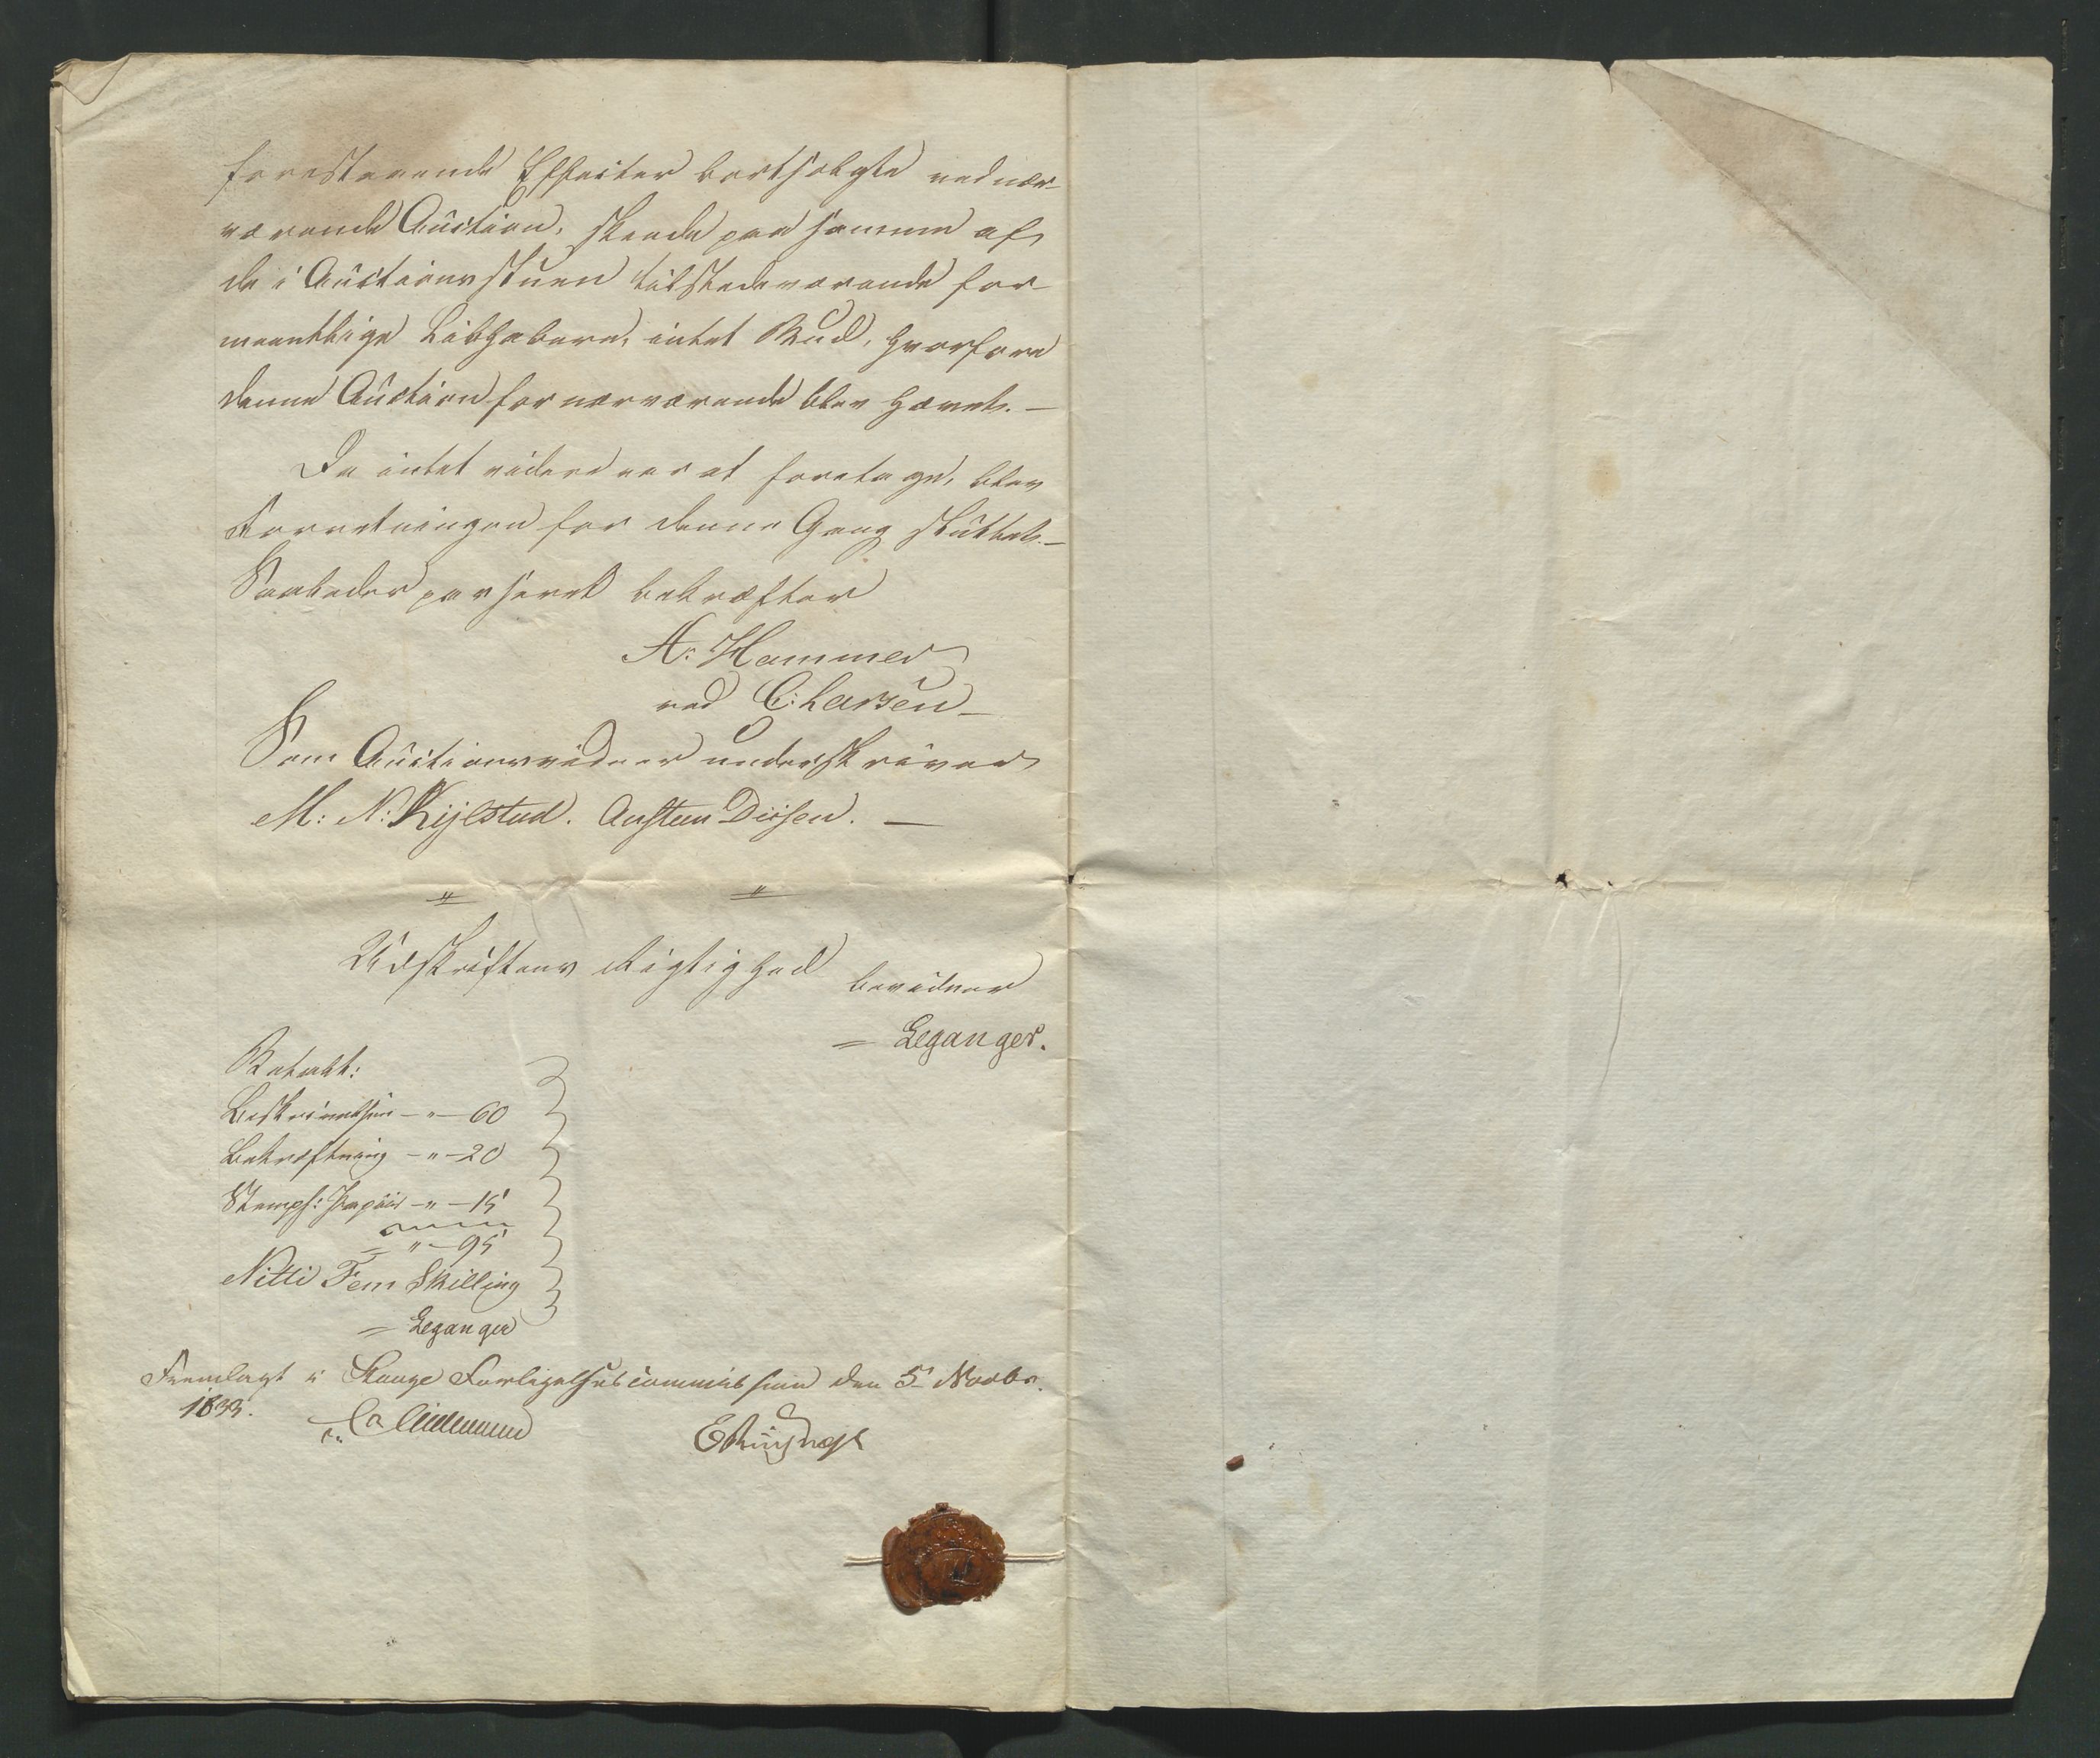 forestaaende Effecter bortsolgte ved nær-
værende Auction, skeede paa samme af
de i Auctionsstuen tilstedeværende for-
meentlige Liebhabere, intet Bud, hvorfore
denne Auction for nærværende blev hævet. —
Da intet videre var at foretage, blev
Forretningen for denne Gang sluttet. —
Saaledes passeret bekræfter
A: Hammer
ved C: Larsen —
Som Auctionsvidner underskriver
M: N: Kijlstad. Austen Diisen. —
〃 〃
Udskriftens Rigtighed bevidner
= Leganger.
Betalt:
Beskrivelsen — „ — 60
Bekræftning — „ — 20
Stempl: Papiir — „ — 15
= „ — 95
Nitti Fem Skilling
= Leganger
Fremlagt i Stange Forligelsescommission den 5 Novbr.
1833.